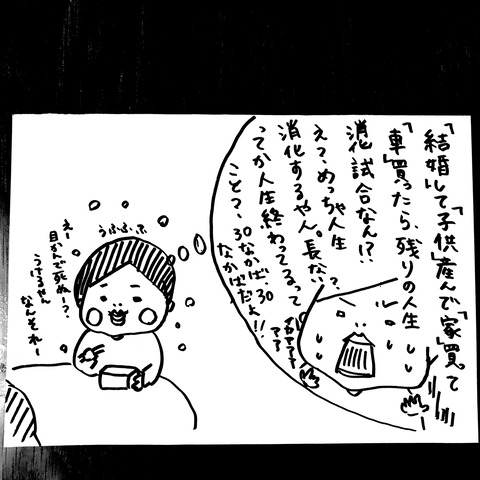 「結婚」して「子供」産んで「家」買って
「車」買ったら、残りの人生
消化試合なん!?
え?、めっちゃ人生
消化するやん。長ない?
ってか人生終わってるって
こと?、30なかば、30
なかばだよ!!
イヤアアア
アアア
うふふふふ
えー
目かんで死ぬー?
うけるやん
なんそれー